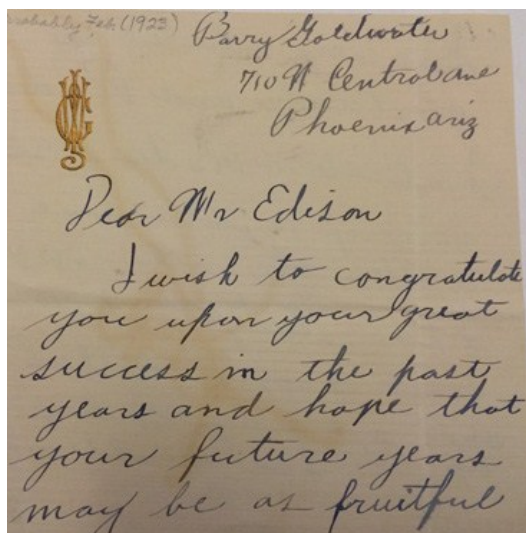 probably Feb (1923)
Barry Goldwater
710 N Central ave
Phoenix ariz
Dear Mr Edison
I wish to congratulate
you upon your great
success in the past
years and hope that
your future years
may be as fruitful